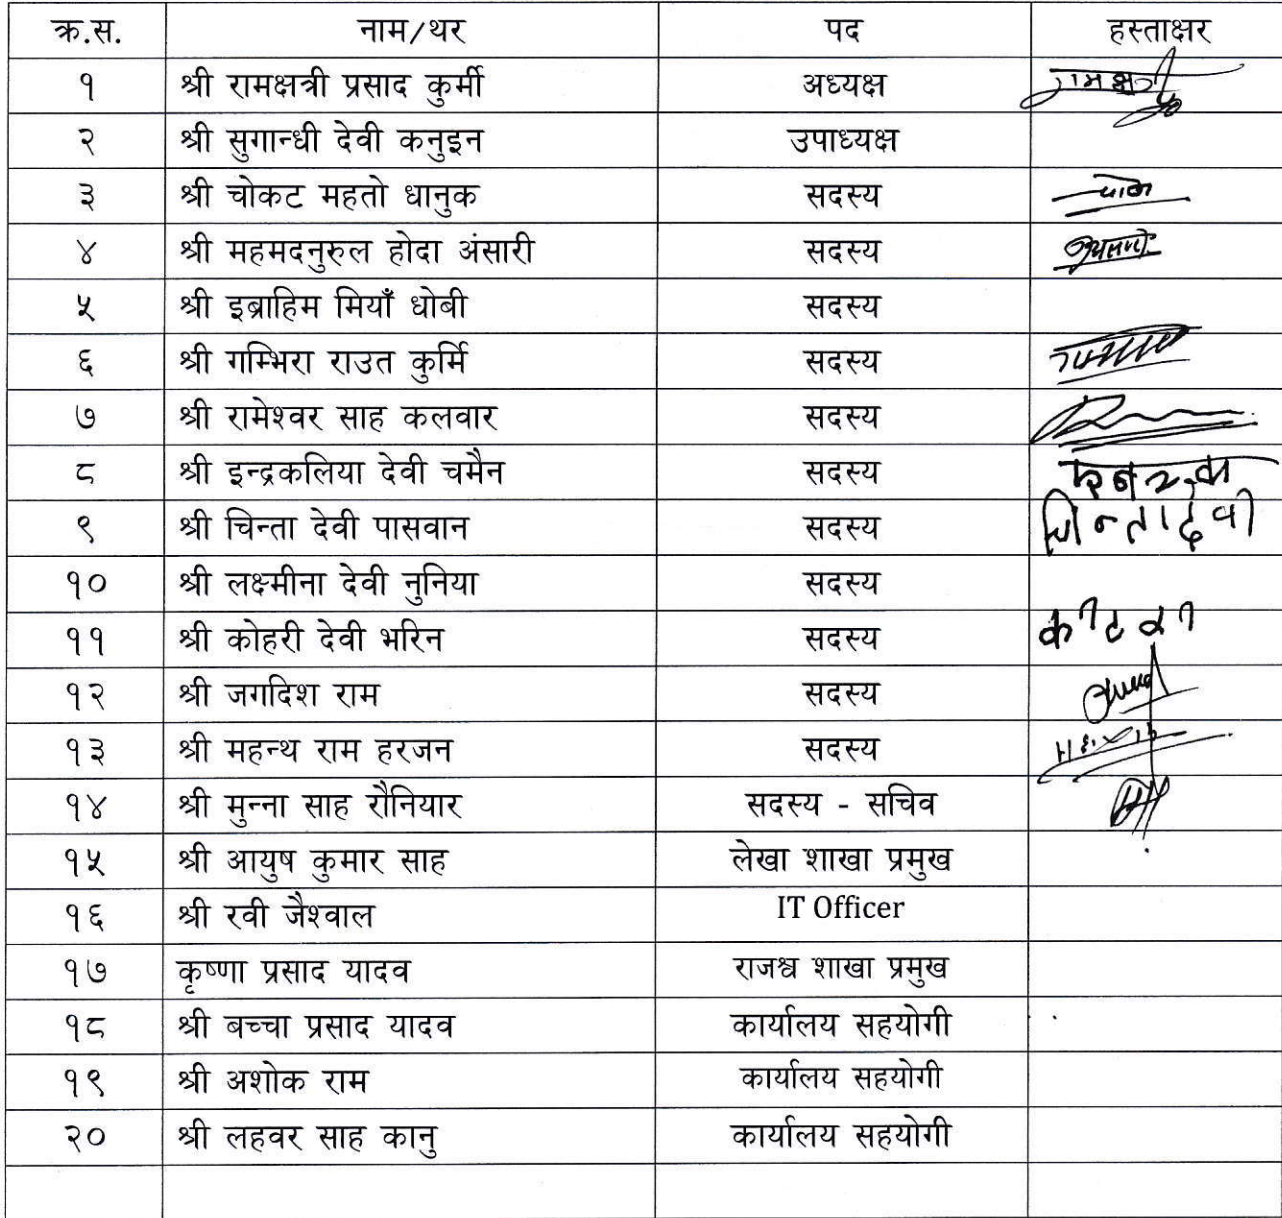 क्र.स. नाम/थर पद हस्ताक्षर
१ श्री रामक्षत्री प्रसाद कुर्मी अध्यक्ष
२ श्री सुगान्धी देवी कनुइन उपाध्यक्ष
३ श्री चोकट महतो धानुक सदस्य
४ श्री महमदनुरुल होदा अंसारी सदस्य
५ श्री इब्राहिम मियाँ धोबी सदस्य
६ श्री गम्भिरा राउत कुर्मि सदस्य
७ श्री रामेश्वर साह कलवार सदस्य
८ श्री इन्द्रकलिया देवी चमैन सदस्य
९ श्री चिन्ता देवी पासवान सदस्य चिन्तादेवी
१० श्री लक्ष्मीना देवी नुनिया सदस्य
११ श्री कोहरी देवी भरिन सदस्य
१२ श्री जगदिश राम सदस्य
१३ श्री महन्थ राम हरजन सदस्य
१४ श्री मुन्ना साह रौनियार सदस्य - सचिव
१५ श्री आयुष कुमार साह लेखा शाखा प्रमुख
१६ श्री रवी जैश्वाल IT Officer
१७ कृष्णा प्रसाद यादव राजश्व शाखा प्रमुख
१८ श्री बच्चा प्रसाद यादव कार्यालय सहयोगी
१९ श्री अशोक राम कार्यालय सहयोगी
२० श्री लहवर साह कानु कार्यालय सहयोगी